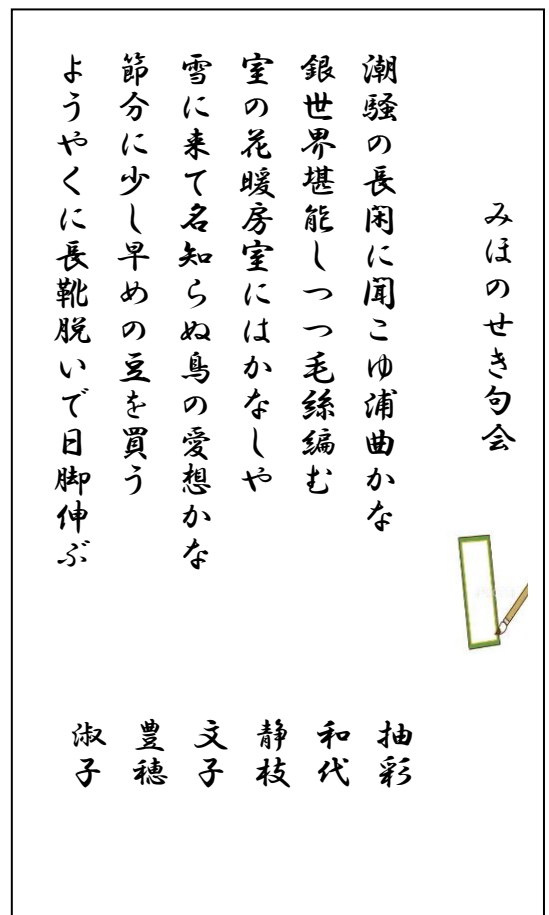 みほのせき句会
潮騒の長閑に聞こゆ浦曲かな 抽彩
銀世界堪能しつつ毛絲編む 和代
室の花暖房室にはかなしや 静枝
雪に来て名知らぬ鳥の愛想かな 文子
節分に少し早めの豆を買う 豊穂
ようやくに長靴脱いで日脚伸ぶ 淑子